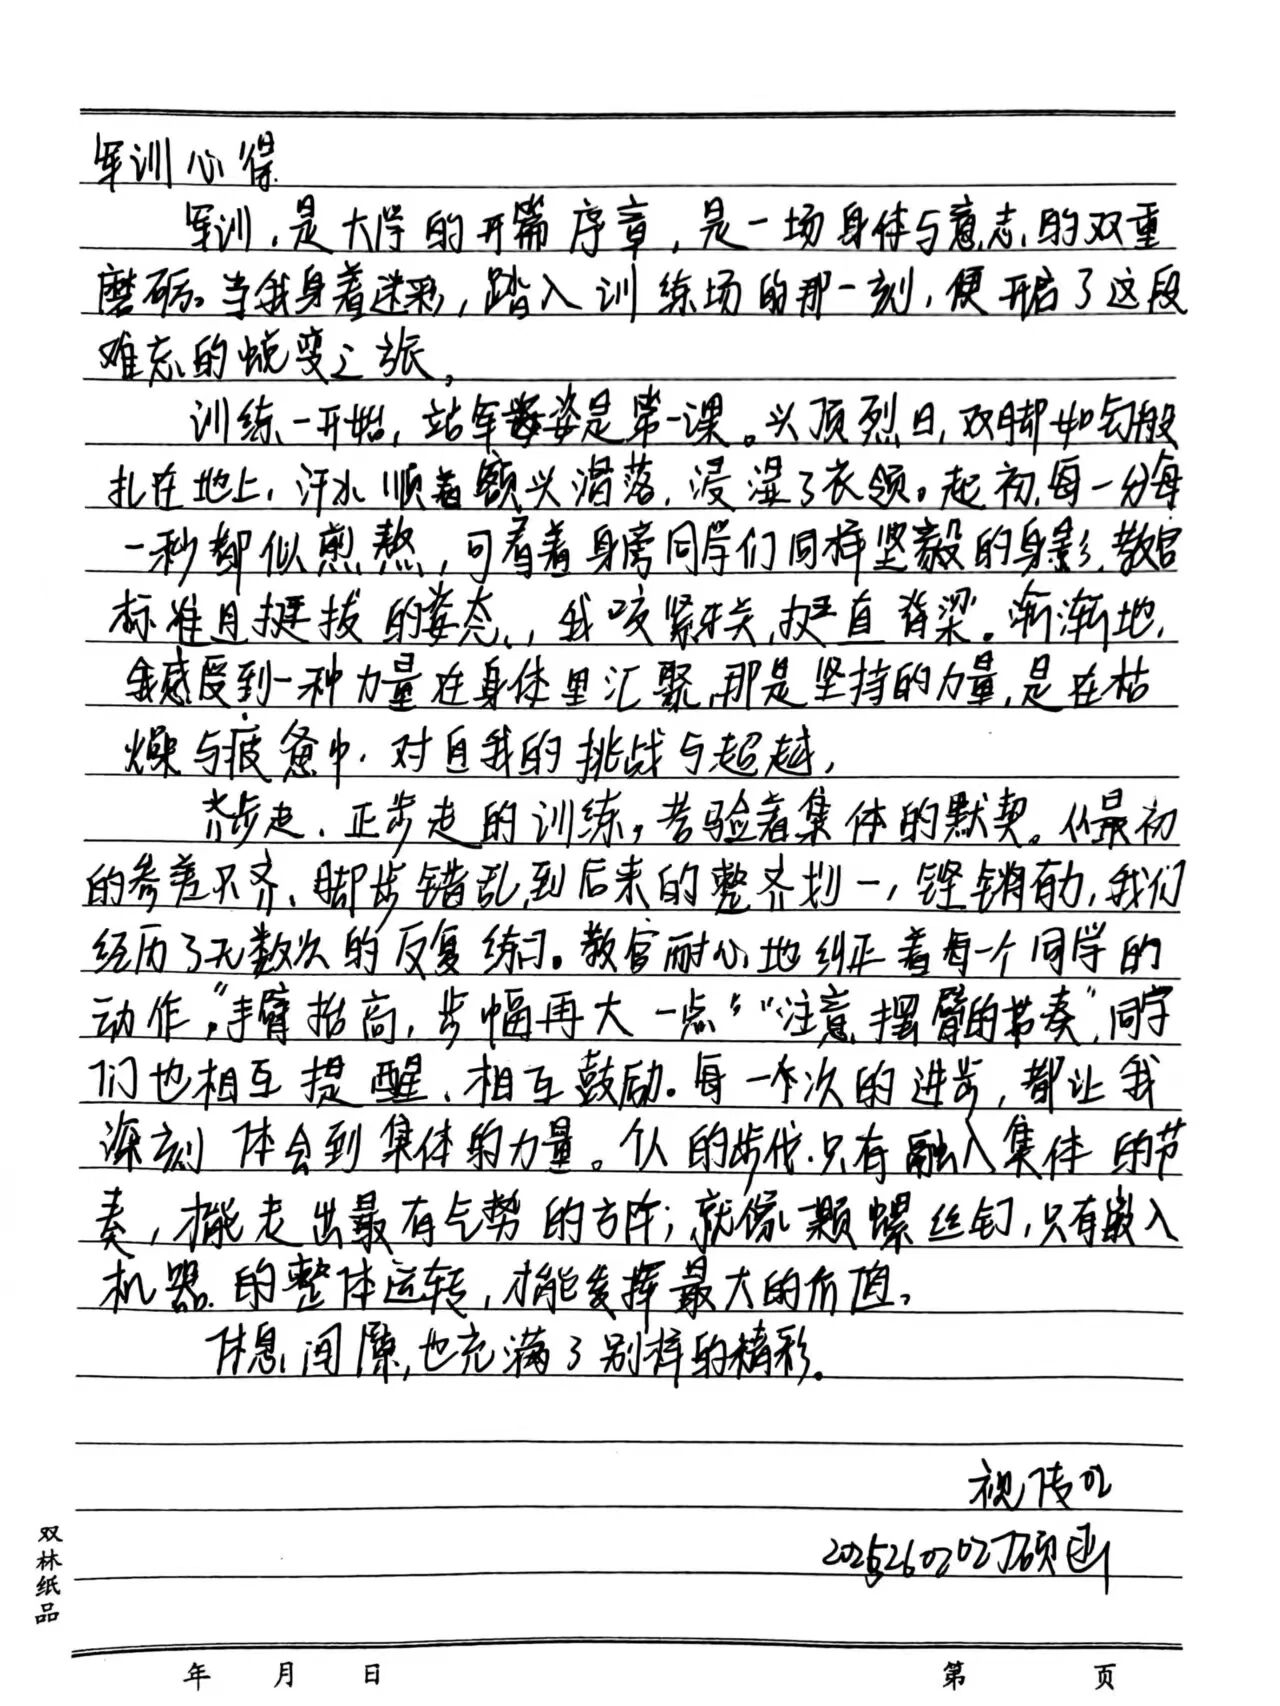 军训心得
军训，是大学的开篇序章，是一场身体与意志的双重
磨砺。当我身着迷彩，踏入训练场的那一刻，便开启了这段
难忘的蜕变之旅。
训练一开始，站军姿是第一课。头顶烈日，双脚如钉般
扎在地上，汗水顺着额头滑落，浸湿了衣领。起初，每一分每
一秒都似煎熬，可看着身旁同学们同样坚毅的身影，教官
标准且挺拔的姿态，我咬紧牙关，挺直脊梁。渐渐地，
我感受到一种力量在身体里汇聚，那是坚持的力量，是在枯
燥与疲惫中，对自我的挑战与超越。
齐步走、正步走的训练，考验着集体的默契。从最初
的参差不齐、脚步错乱，到后来的整齐划一，铿锵有力，我们
经历了无数次的反复练习。教官耐心地纠正着每一个同学的
动作，“手臂抬高，步幅再大一点”“注意摆臂的节奏”，同学
们也相互提醒、相互鼓励。每一次的进步，都让我
深刻体会到集体的力量。个人的步伐，只有融入集体的节
奏，才能走出最有气势的方阵；就像一颗螺丝钉，只有嵌入
机器的整体运转，才能发挥最大的价值。
休息间隙，也充满了别样的精彩。
双林纸品
年 月 日 第 页